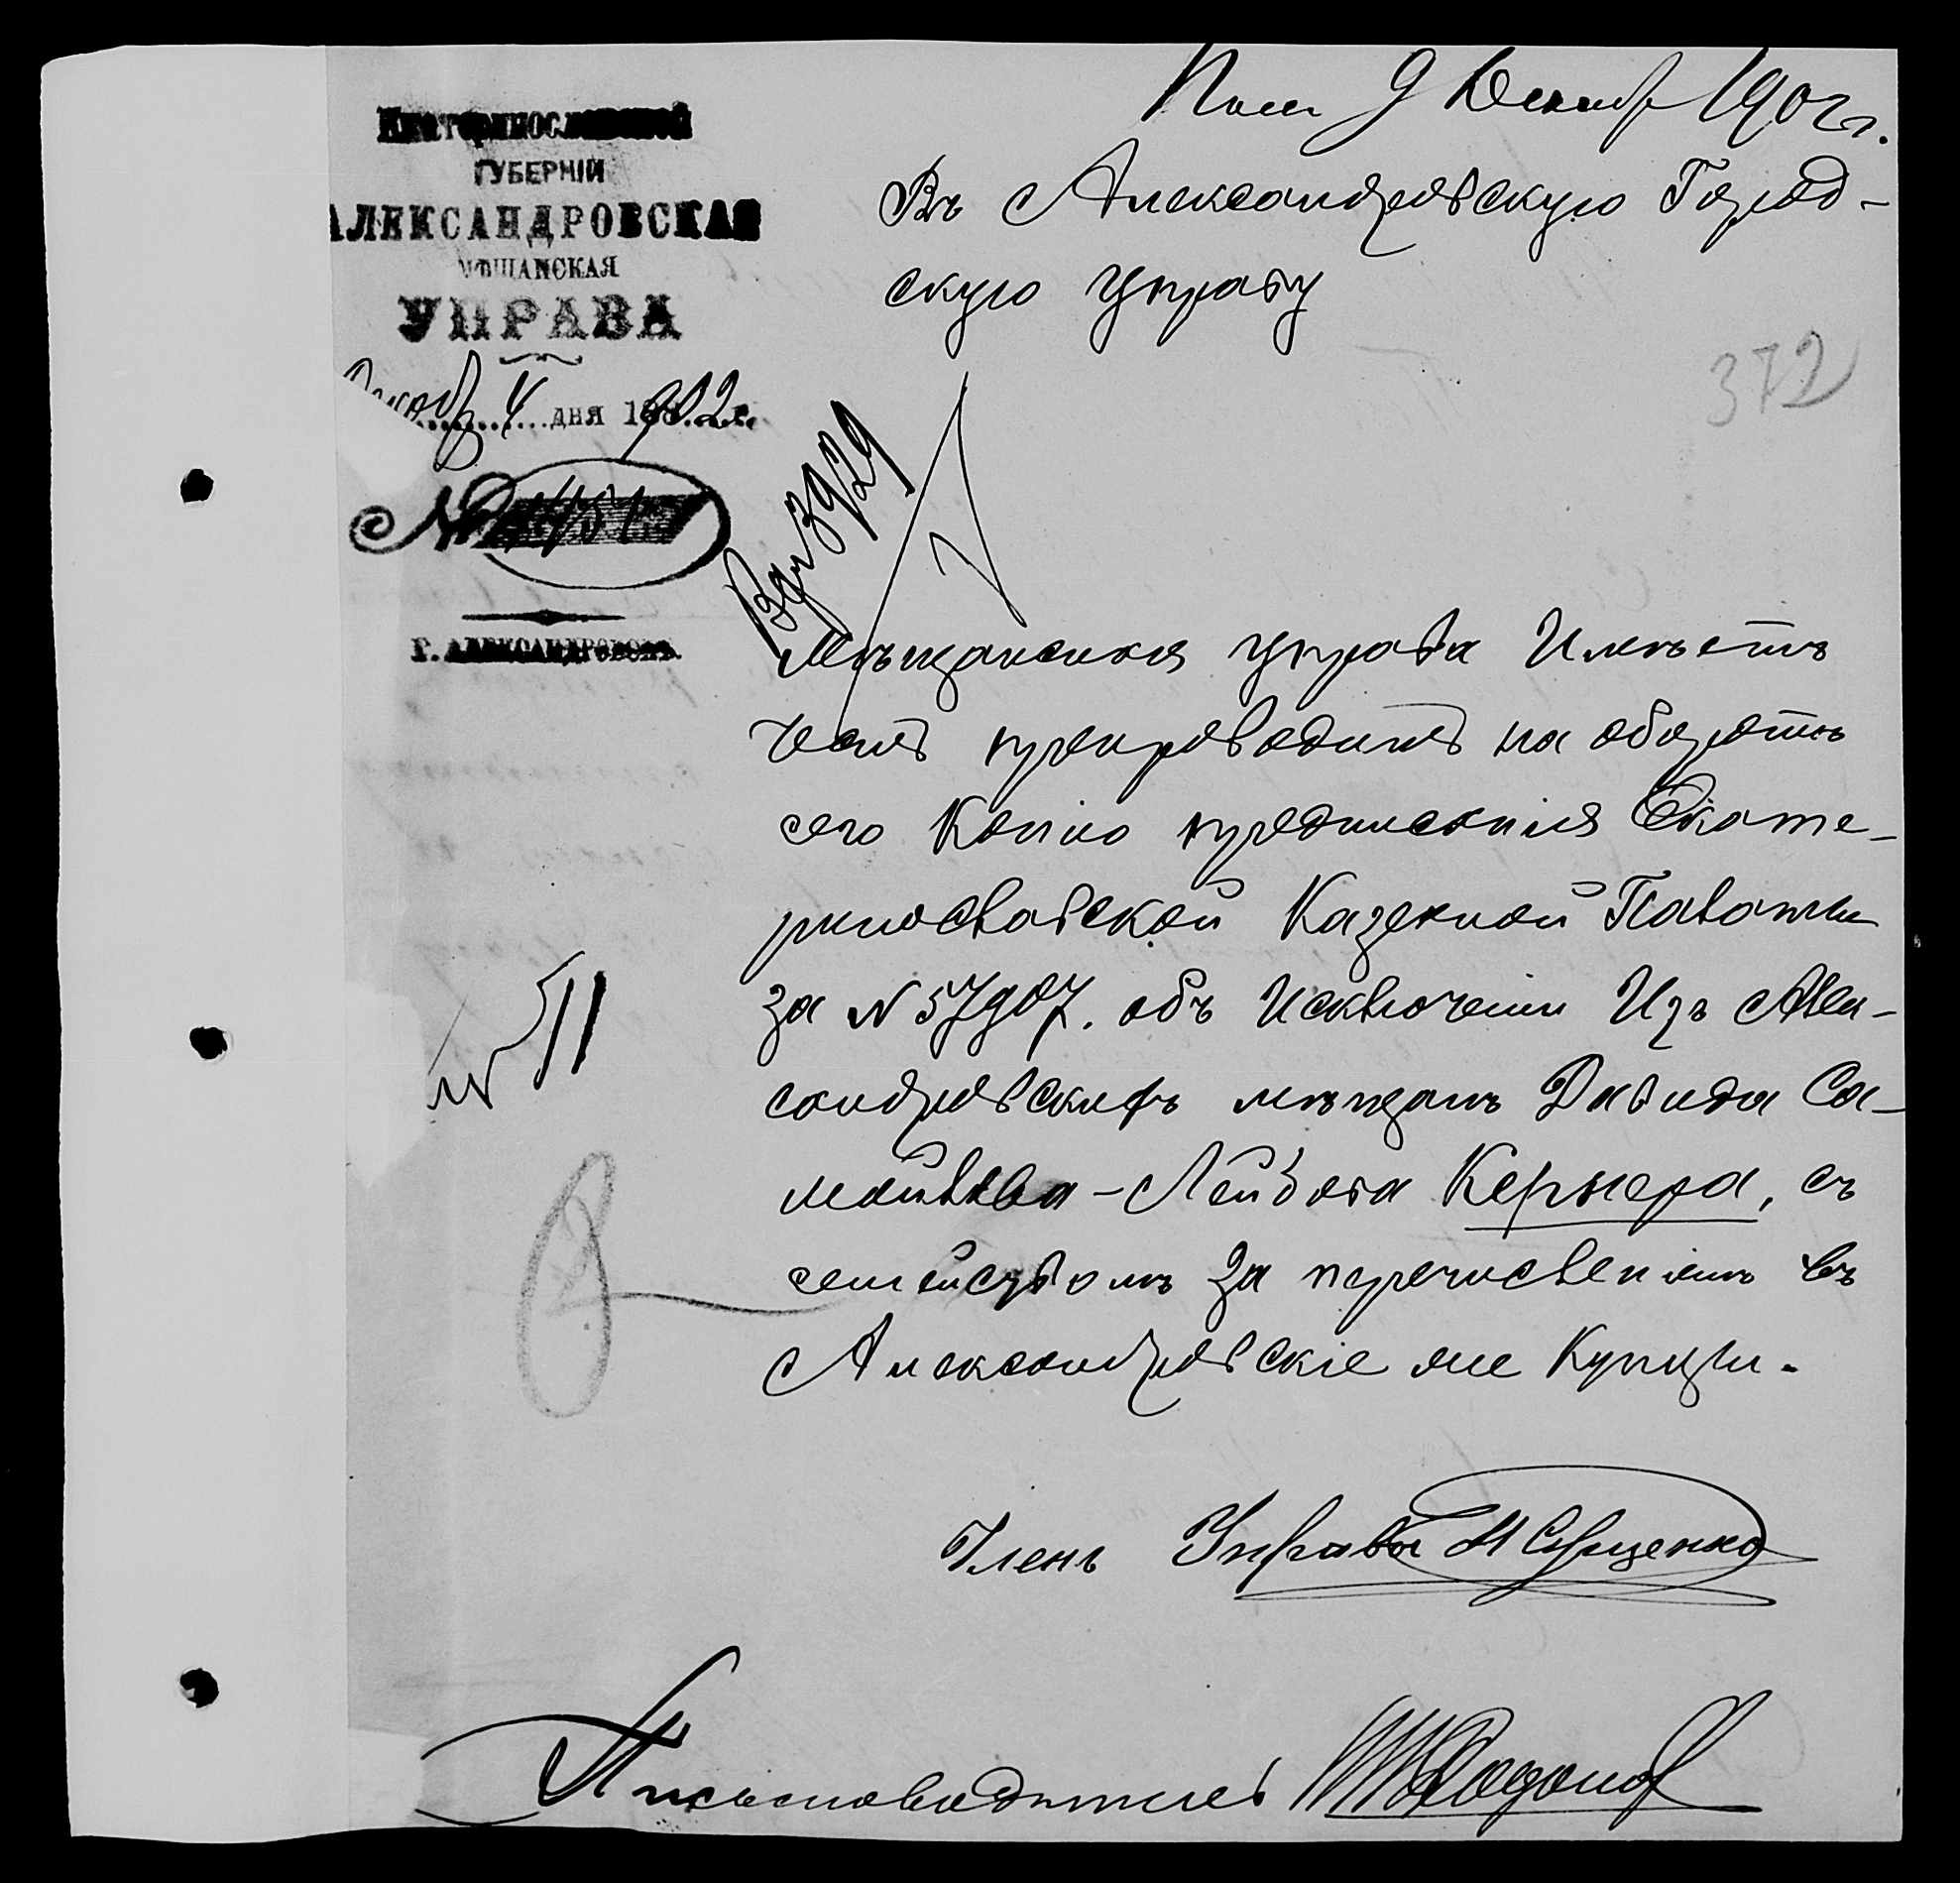 Пол 9 Декабр 1902 г.
Екатеринославской
ГУБЕРНІИ
АЛЕКСАНДРОВСКАЯ
МѢЩАНСКАЯ
УПРАВА
Декабр 4 дня 1902 г.
№
Г. АЛЕКСАНДРОВСКЪ.
Въ Александровскую Город-
скую Управу
372
Вх 3929
Мѣщанская управа Имѣетъ
честь препроводить на оборотѣ
сего Копію предписанія Екате-
ринославской Казенной Палаты
за № 57907. объ Исключеніи Изъ Алек-
сандровскихъ мѣщанъ Давида Са-
мойлова-Лейбова Кернера, съ
семействомъ за перечисленіемъ въ
Александровскіе же Купцы.
№ 511
Членъ Управы
Письмоводитель